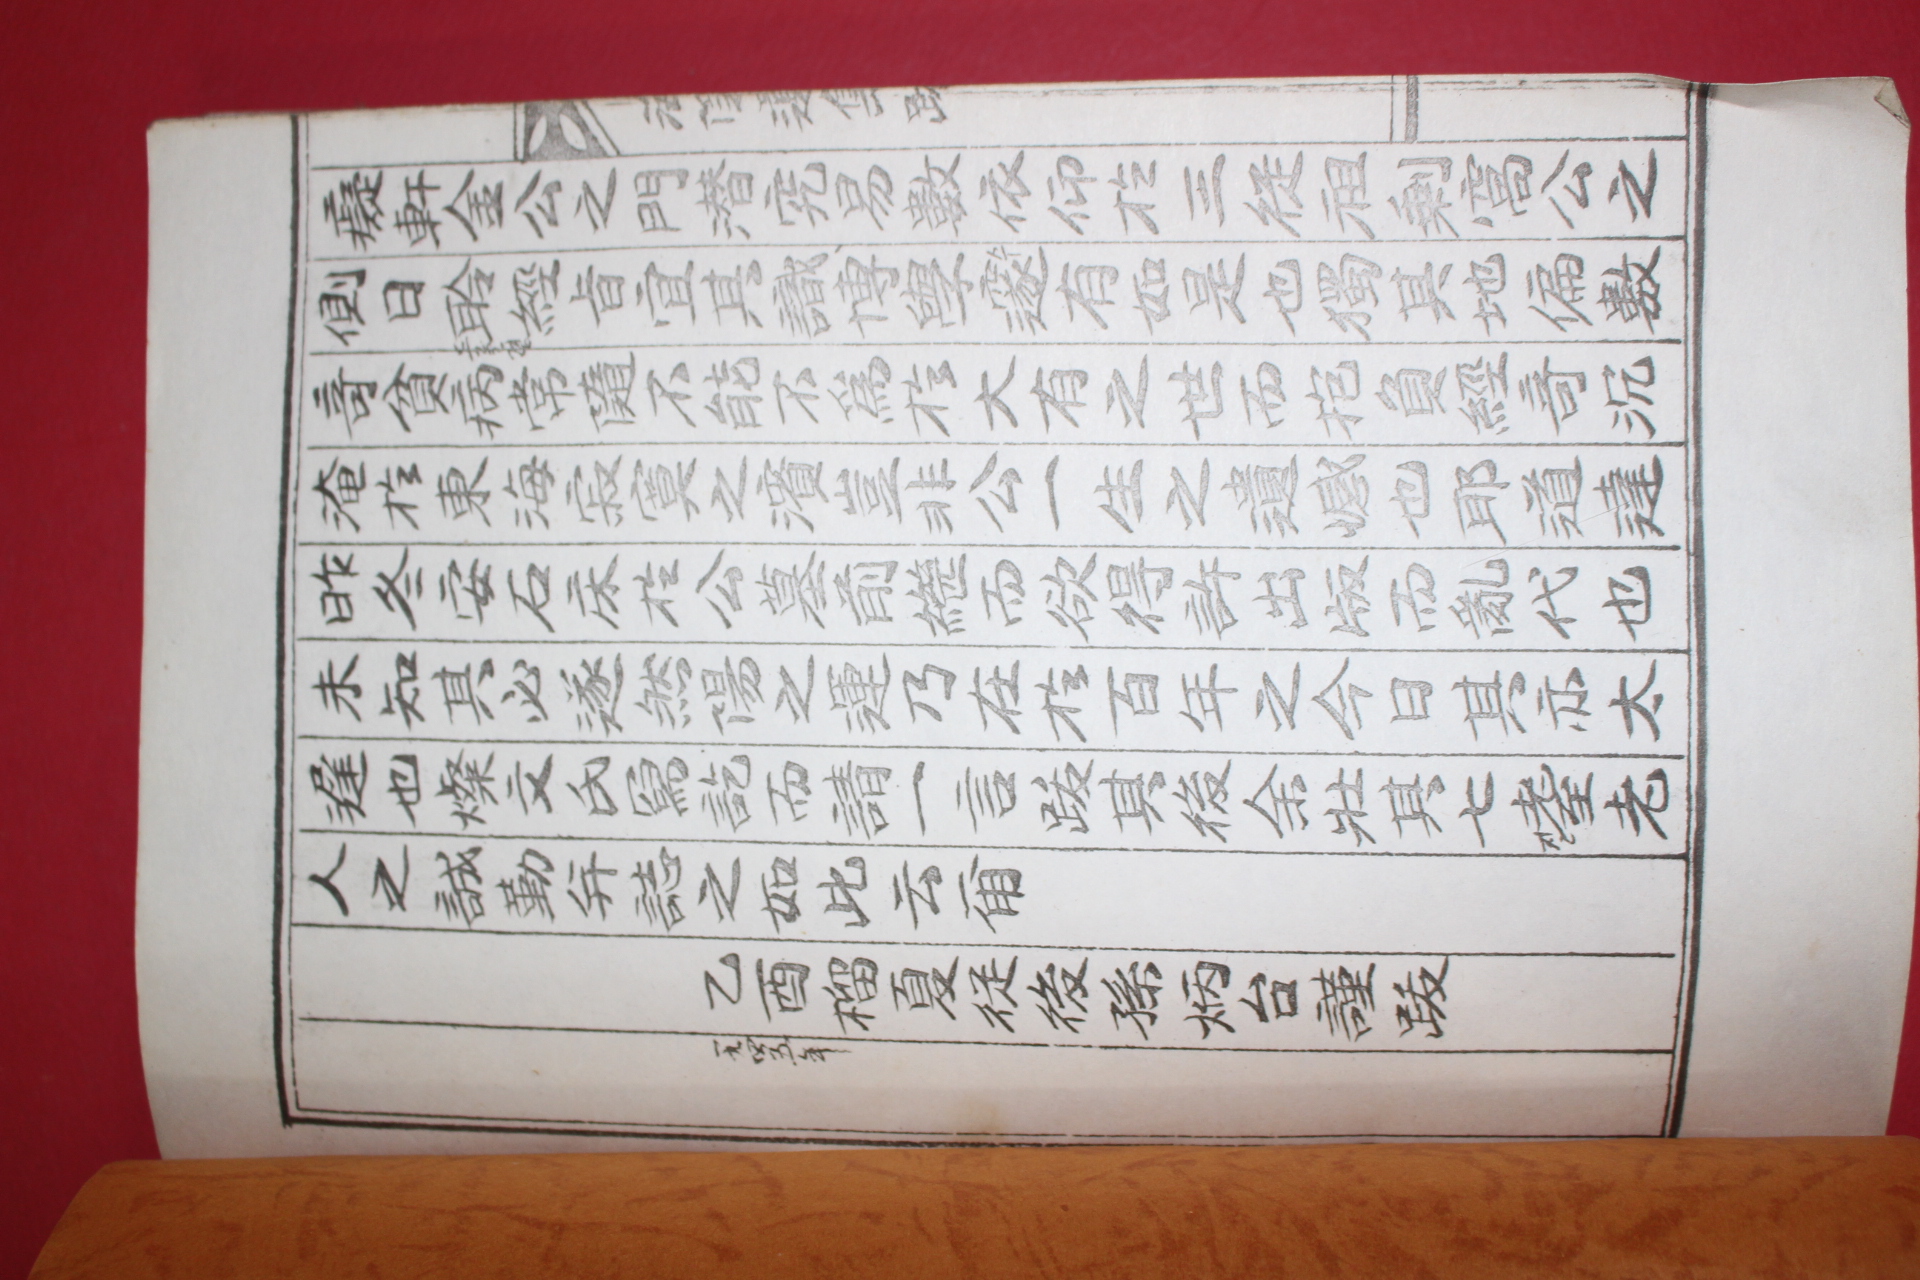 癡軒金公之門潜究易數依仰於三從祖剩窩公之
側日聆經旨宜其識博學邃有如是也獨其地偏數
奇貧病常隨不能不爲於大有之世而抱負經奇沉
淹於東海寂寞之濱豈非公一生之遺憾也耶道達
昨冬安石床於公墓前繼而欲得許出版而亂代也
未知其必遂然陽之運乃在於百年之今日其亦太
遲也燦文氏寫訖而請一言跋其後余壯其七耋老
人之誠勤弁誌之如此云爾
乙酉榴夏從後孫炳台謹跋
一九四五年